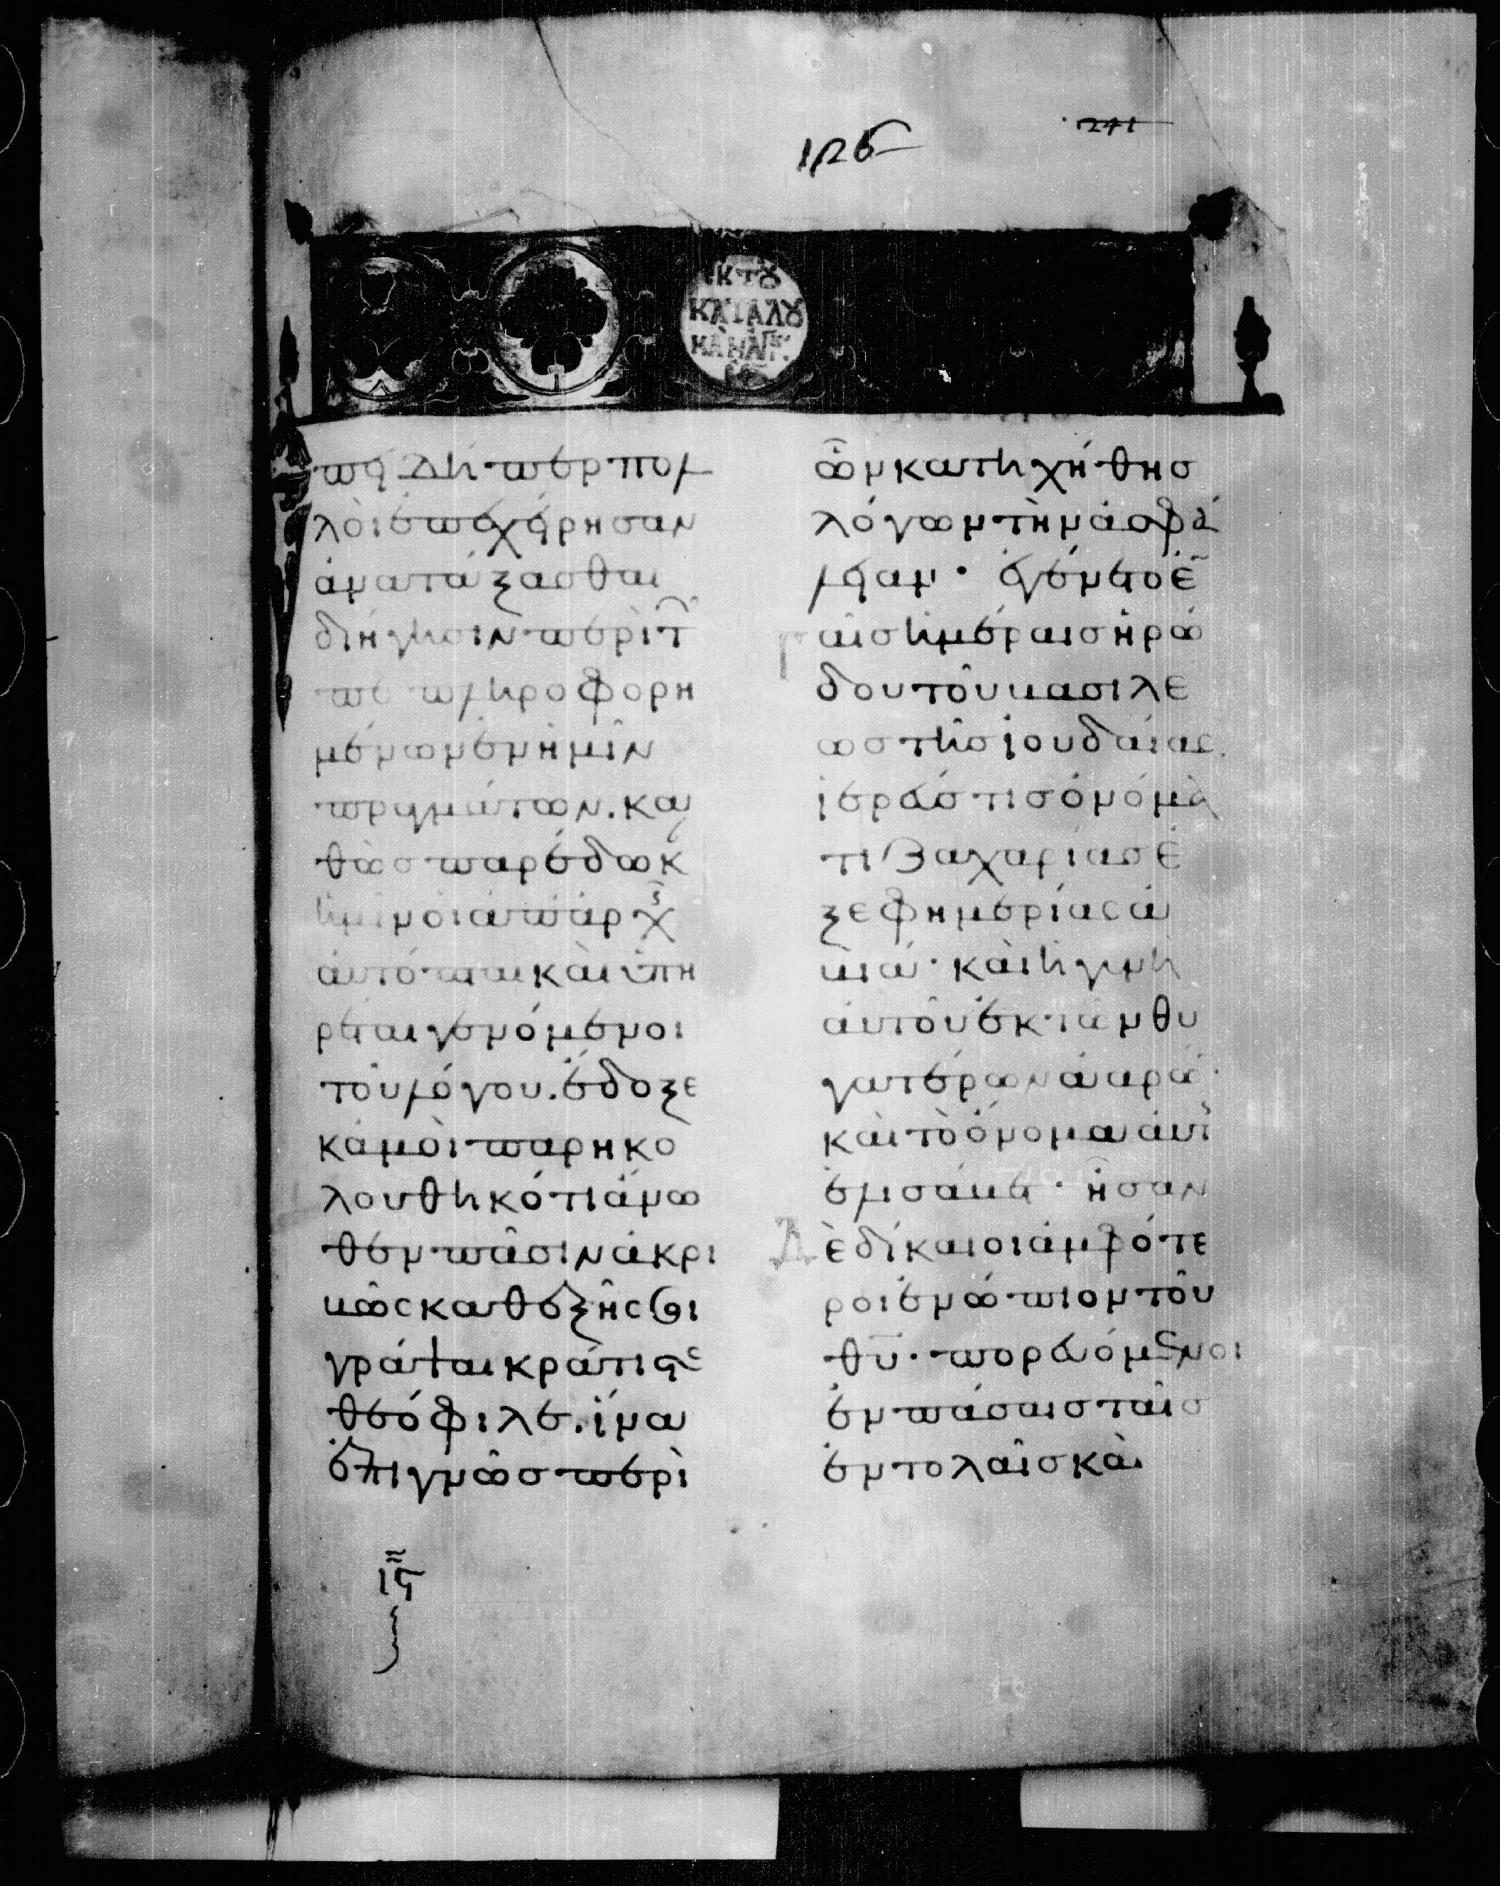 126
241
ἐκ τοῦ
κατὰ λου
κᾶν ἁγ
πει δήπερ πολ
λοὶ ἐπεχείρησαν
ἀνατάξασθαι
διήγησιν περὶ τ
πε πληροφορη
μένων ἐν ἡμῖν
πραγμάτων. κα
θὼς παρέδωκ
ἡμῖν οἱ ἀπ ἀρχ
αὐτόπται καὶ ὑπη
ρέται γενόμενοι
τοῦ λόγου. ἔδοξε
κἀμοὶ παρηκο
λουθηκότι ἄνω
θεν πᾶσιν ἀκρι
βῶς καθεξῆς σοι
γράψαι κράτιστε
θεόφιλε. ἵνα
ἐπιγνῶς περὶ
ὧν κατηχήθησ
λόγων τὴν ἀσφά
λειαν· ἐγένετο ἐ
ταῖς ἡμέραις ἡρώ
δου τοῦ βασιλέ
ως τῆς ἰουδαίας
ἱερεύς τις ὀνόμα
τι ζαχαρίας ἐ
ξ ἐφημερίας ἀ
βιά· καὶ ἡ γυνὴ
αὐτοῦ ἐκ τῶν θυ
γατέρων ἀαρώ
καὶ τὸ ὄνομα αὐτ
ἐλισάβετ· ἦσαν
δὲ δίκαιοι ἀμφότε
ροι ἐνώπιον τοῦ
θυ· πορευόμενοι
ἐν πάσαις ταῖς
ἐντολαῖς καὶ
ις